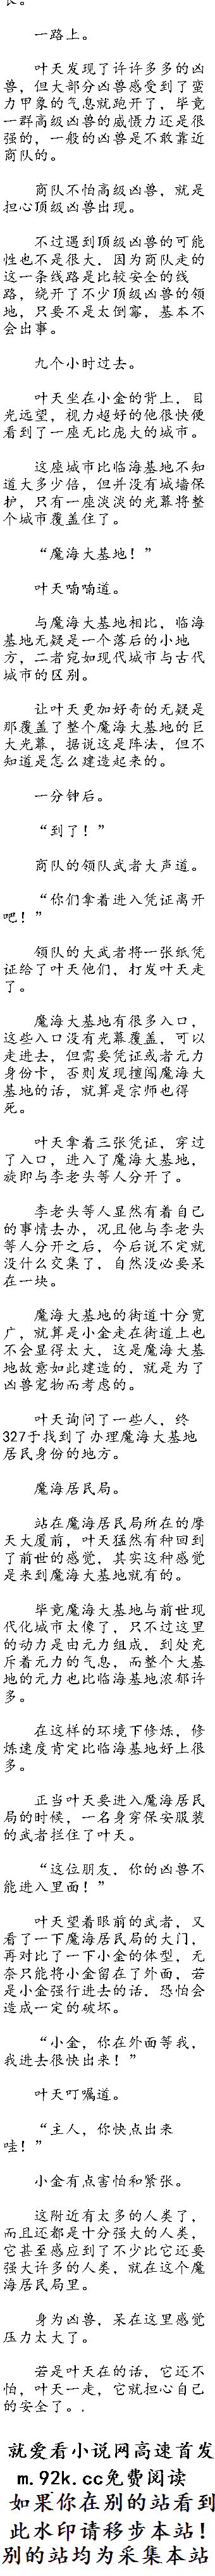 长。
一路上。
叶天发现了许许多多的凶
兽，但大部分凶兽感受到了蛮
力甲象的气息就跑开了，毕竟
一群高级凶兽的威慑力还是很
强的，一般的凶兽是不敢靠近
商队的。
商队不怕高级凶兽，就是
担心顶级凶兽出现。
不过遇到顶级凶兽的可能
性也不是很大，因为商队走的
这一条线路是比较安全的线
路，绕开了不少顶级凶兽的领
地，只要不是太倒霉，基本不
会出事。
九个小时过去。
叶天坐在小金的背上，目
光远望，视力超好的他很快便
看到了一座无比庞大的城市。
这座城市比临海基地不知
道大多少倍，但并没有城墙保
护，只有一座淡淡的光幕将整
个城市覆盖住了。
“魔海大基地！”
叶天喃喃道。
与魔海大基地相比，临海
基地无疑是一个落后的小地
方，二者宛如现代城市与古代
城市的区别。
让叶天更加好奇的无疑是
那覆盖了整个魔海大基地的巨
大光幕，据说这是阵法，但不
知道是怎么建造起来的。
一分钟后。
“到了！”
商队的领队武者大声道。
“你们拿着进入凭证离开
吧！”
领队的大武者将一张纸凭
证给了叶天他们，打发叶天走
了。
魔海大基地有很多入口，
这些入口没有光幕覆盖，可以
走进去，但需要凭证或者元力
身份卡，否则发现擅闯魔海大
基地的话，就算是宗师也得
死。
叶天拿着三张凭证，穿过
了入口，进入了魔海大基地，
旋即与李老头等人分开了。
李老头等人显然有着自己
的事情去办，况且他与李老头
等人分开之后，今后说不定就
没什么交集了，自然没必要呆
在一块。
魔海大基地的街道十分宽
广，就算是小金走在街道上也
不会显得太大，这是魔海大基
地故意如此建造的，就是为了
凶兽宠物而考虑的。
叶天询问了一些人，终
327于找到了办理魔海大基地
居民身份的地方。
魔海居民局。
站在魔海居民局所在的摩
天大厦前，叶天猛然有种回到
了前世的感觉，其实这种感觉
是来到魔海大基地就有的。
毕竟魔海大基地与前世现
代化城市太像了，只不过这里
的动力是由元力组成，到处充
斥着元力的气息，而整个大基
地的元力也比临海基地浓郁许
多。
在这样的环境下修炼，修
炼速度肯定比临海基地好上很
多。
正当叶天要进入魔海居民
局的时候，一名身穿保安服装
的武者拦住了叶天。
“这位朋友，你的凶兽不
能进入里面！”
叶天望着眼前的武者，又
看了一下魔海居民局的大门，
再对比了一下小金的体型，无
奈只能将小金留在了外面，若
是小金强行进去的话，恐怕会
造成一定的破坏。
“小金，你在外面等我，
我进去很快出来！”
叶天叮嘱道。
“主人，你快点出来
哇！”
小金有点害怕和紧张。
这附近有太多的人类了，
而且还都是十分强大的人类，
它甚至感应到了不少比它还要
强大许多的人类，就在这个魔
海居民局里。
身为凶兽，呆在这里感觉
压力太大了。
若是叶天在的话，它还不
怕，叶天一走，它就担心自己
的安全了。.
就爱看小说网高速首发
m.92k.cc免费阅读
如果你在别的站看到
此水印请移步本站！
别的站均为采集本站